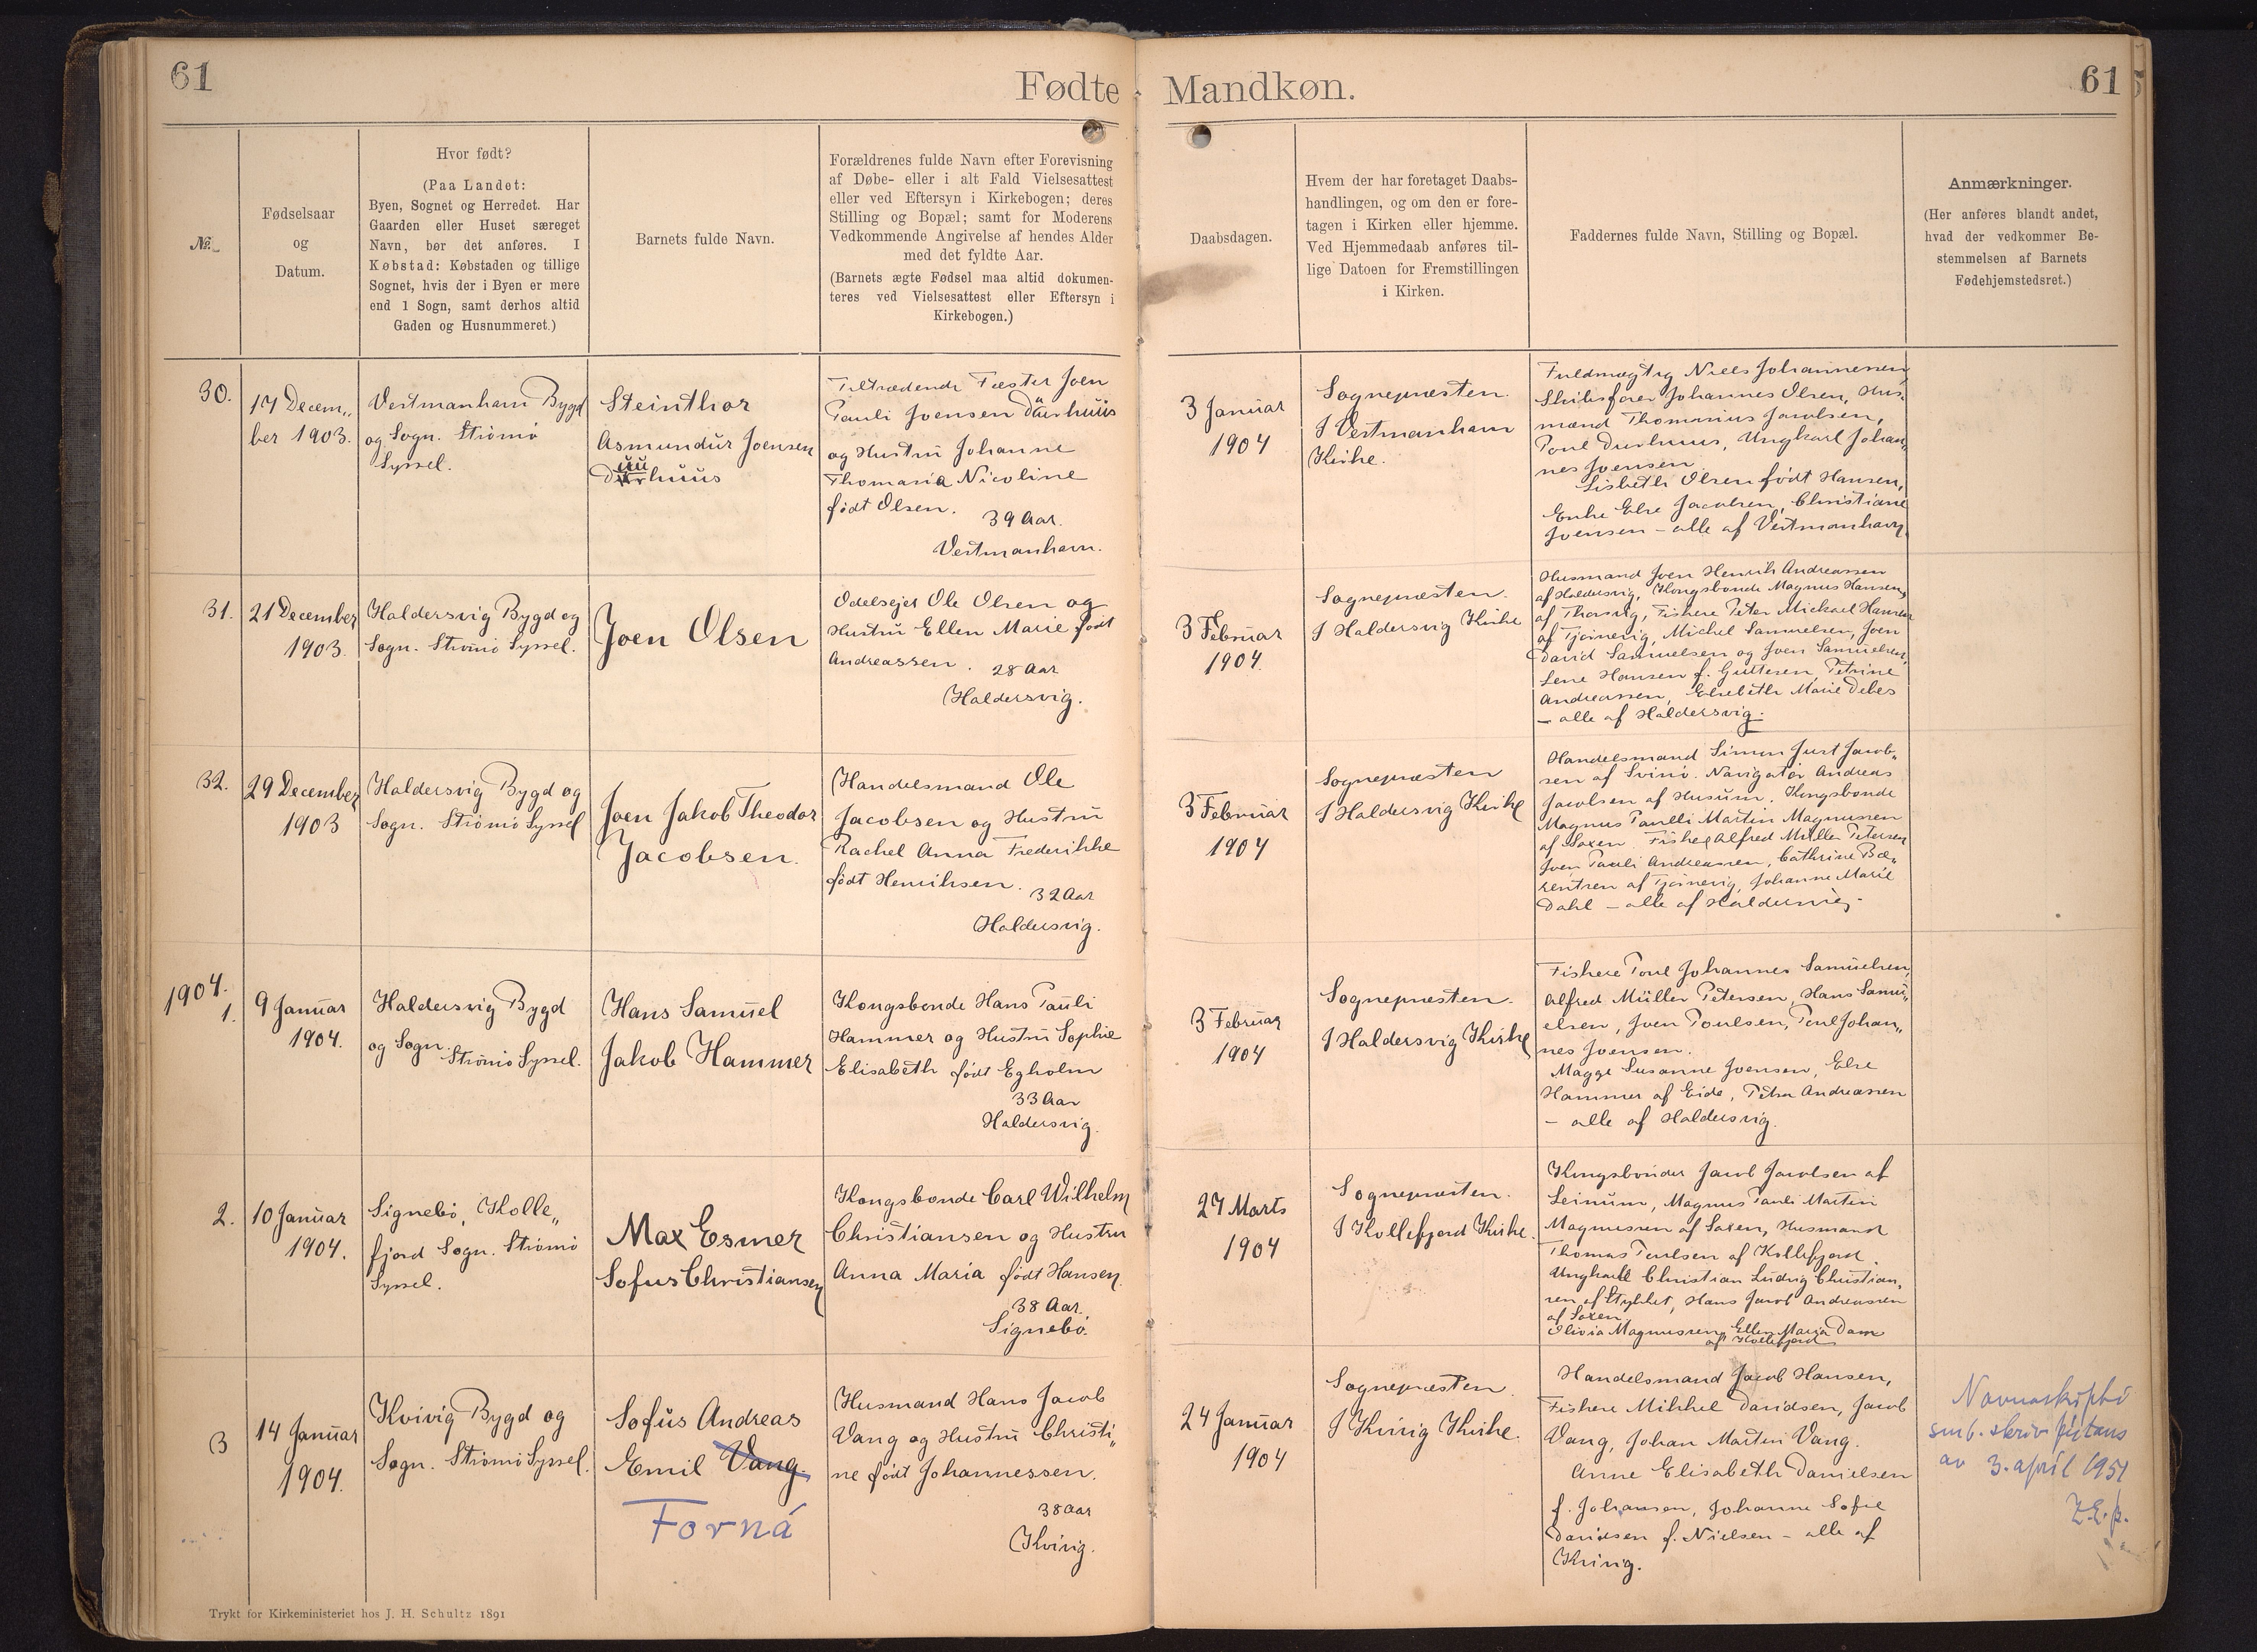 61
Fødte
Mandkøn.
61
№
Fødselsaar
og
Datum.
Hvor født?
(Paa Landet:
Byen, Sognet og Herredet. Har
Gaarden eller Huset særeget
Navn, bør det anføres. I
Købstad: Købstaden og tillige
Sognet, hvis der i Byen er mere
end 1 Sogn, samt derhos altid
Gaden og Husnummeret.)
Barnets fulde Navn.
Forældrenes fulde Navn efter Forevisning
af Døbe- eller i alt Fald Vielsesattest
eller ved Eftersyn i Kirkebogen; deres
Stilling og Bopæl; samt for Moderens
Vedkommende Angivelse af hendes Alder
med det fyldte Aar.
(Barnets ægte Fødsel maa altid dokumen-
teres ved Vielsesattest eller Eftersyn i
Kirkebogen.)
Daabsdagen.
Hvem der har foretaget Daabs-
handlingen, og om den er fore-
tagen i Kirken eller hjemme.
Ved Hjemmedaab anføres til-
lige Datoen for Fremstillingen
i Kirken.
Faddernes fulde Navn, Stilling og Bopæl.
Anmærkninger.
(Her anføres blandt andet,
hvad der vedkommer Be-
stemmelsen af Barnets
Fødehjemstedsret.)
30.
17 Decem„
ber 1903.
Vestmanhavn Bygd
og Sogn. Strömö
Syssel.
Steinthor
Asmundur Joensen
Duurhuus
Tiltrædende Fæster Joen
Pauli Joensen Duurhuus
og Hustru Johanne
Thomasia Nicoline
født Olsen.
39 Aar.
Vestmanhavn.
3 Januar
1904
Sognepræsten.
I Vestmanhavn
Kirke.
Fuldmægtig Niels Johannesen,
Skibsfører Johannes Olsen, Hus„
mænd Thomasius Jacobsen,
Poul Durhuus, Ungkarl Johan„
nes Joensen
Lisbeth Olsen født Hansen,
Enke Else Jacobsen, Christiane
Joensen – alle af Vestmanhavn.
31.
21 December
1903.
Haldersvig Bygd og
Sogn. Strömö Syssel.
Joen Olsen
Odelsejer Ole Olsen og
Hustru Ellen Marie født
Andreassen.
28 Aar
Haldersvig.
3 Februar
1904.
Sognepræsten.
I Haldersvig Kirke
Husmand Joen Henrik Andreassen
af Haldersvig, Kongsbonde Magnus Hansen,
af Thorsvig, Fiskere Peter Mickael Hansen
af Tjörnevig, Michel Samuelsen, Joen
David Samuelsen og Joen Samuelsen,
Lene Hansen f. Guttesen, Petrine
Andreassen, Elsebeth Marie Debes
– alle af Haldersvig.
32.
29 December
1903
Haldersvig Bygd og
Sogn. Strömö Syssel
Joen Jakob Theodor
Jacobsen.
Handelsmand Ole
Jacobsen og Hustru
Rachel Anna Frederikke
født Henriksen.
32 Aar
Haldersvig.
3 Februar
1904
Sognepræsten
I Haldersvig Kirke
Handelsmand Simon Just Jacob„
sen af Svinö. Navigatör Andreas
Jacobsen af Husum. Kongsbonde
Magnus Paulli Martin Magnussen
af Saxen. Fisker Alfred Müller Petersen
Joen Pauli Andreassen, Cathrine Bæ„
rentsen af Tjörnevig, Johanne Marie
Dahl – alle af Haldersvig.
1904.
1.
9 Januar
1904.
Haldersvig Bygd
og Sogn.
Strömö Syssel.
Hans Samuel
Jakob Hammer
Kongsbonde Hans Pauli
Hammer og Hustru Sophie
Elisabeth født Egholm
33 Aar
Haldersvig.
3 Februar
1904
Sognepræsten.
I Haldersvig Kirke
Fiskere Poul Johannes Samuelsen,
Alfred Müller Petersen, Hans Samu„
elsen, Joen Poulsen, Poul Johan„
nes Joensen.
Magge Susanne Joensen, Else
Hammer af Eide, Petra Andreassen
– alle af Haldersvig.
2.
10 Januar
1904.
Signebö, Kolle„
fjord Sogn. Strömö
Syssel.
Max Esmer
Sofus Christiansen
Kongsbonde Carl Wilhelm
Christiansen og Hustru
Anna Maria født Hansen.
38 Aar.
Signebö.
27 Marts
1904
Sognepræsten.
I Kollefjord Kirke.
Kongsbönder Jacob Jacobsen af
Leinum, Magnus Pauli Martin
Magnussen af Saxen, Husmand
Thomas Poulsen af Kollefjord.
Ungkarle Christian Ludvig Christian„
sen af Stykket, Hans Jacob Andreassen
af Saxen,
Olivia Magnussen, Ellen Maria Dam
af Kollefjord
3
14 Januar
1904.
Kvivig Bygd og
Sogn. Strömö Syssel.
Sofus Andreas
Emil Vang.
Forná
Husmand Hans Jacob
Vang og Hustru Christi„
ne født Johannessen.
38 Aar
Kvivig.
24 Januar
1904
Sognepræsten.
I Kvivig Kirke.
Handelsmand Jacob Hansen,
Fiskere Mikkel Davidsen, Jacob
Vang, Johan Martin Vang.
Anne Elisabeth Danielsen
f. Johansen, Johanne Sofie
Davidsen f. Nielsen – alle af
Kvivig.
smb. skriv
av 3. april 1951
Trykt for Kirkeministeriet hos J. H. Schultz 1891